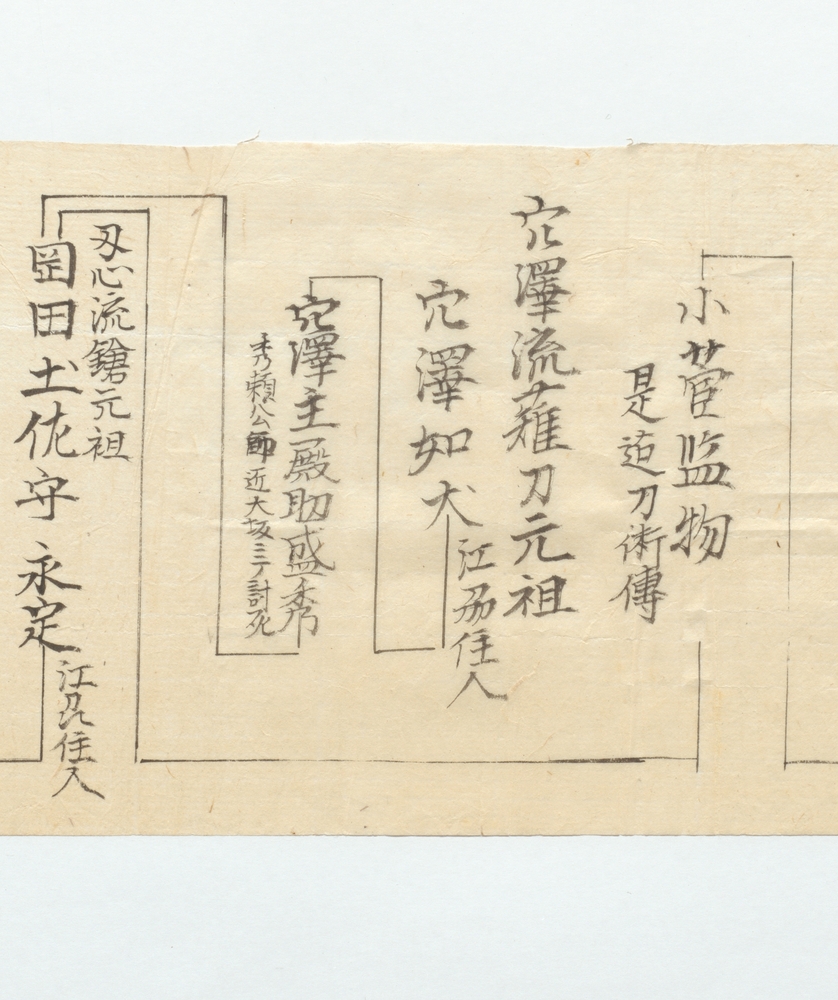 小菅監物
是迠刀術傳
穴澤流薙刀元祖
穴澤如犬
江州住人
穴澤主殿助盛秀
秀頼公師近大坂ニテ討死
刄心流鎗元祖
岡田土佐守永定
江州住人